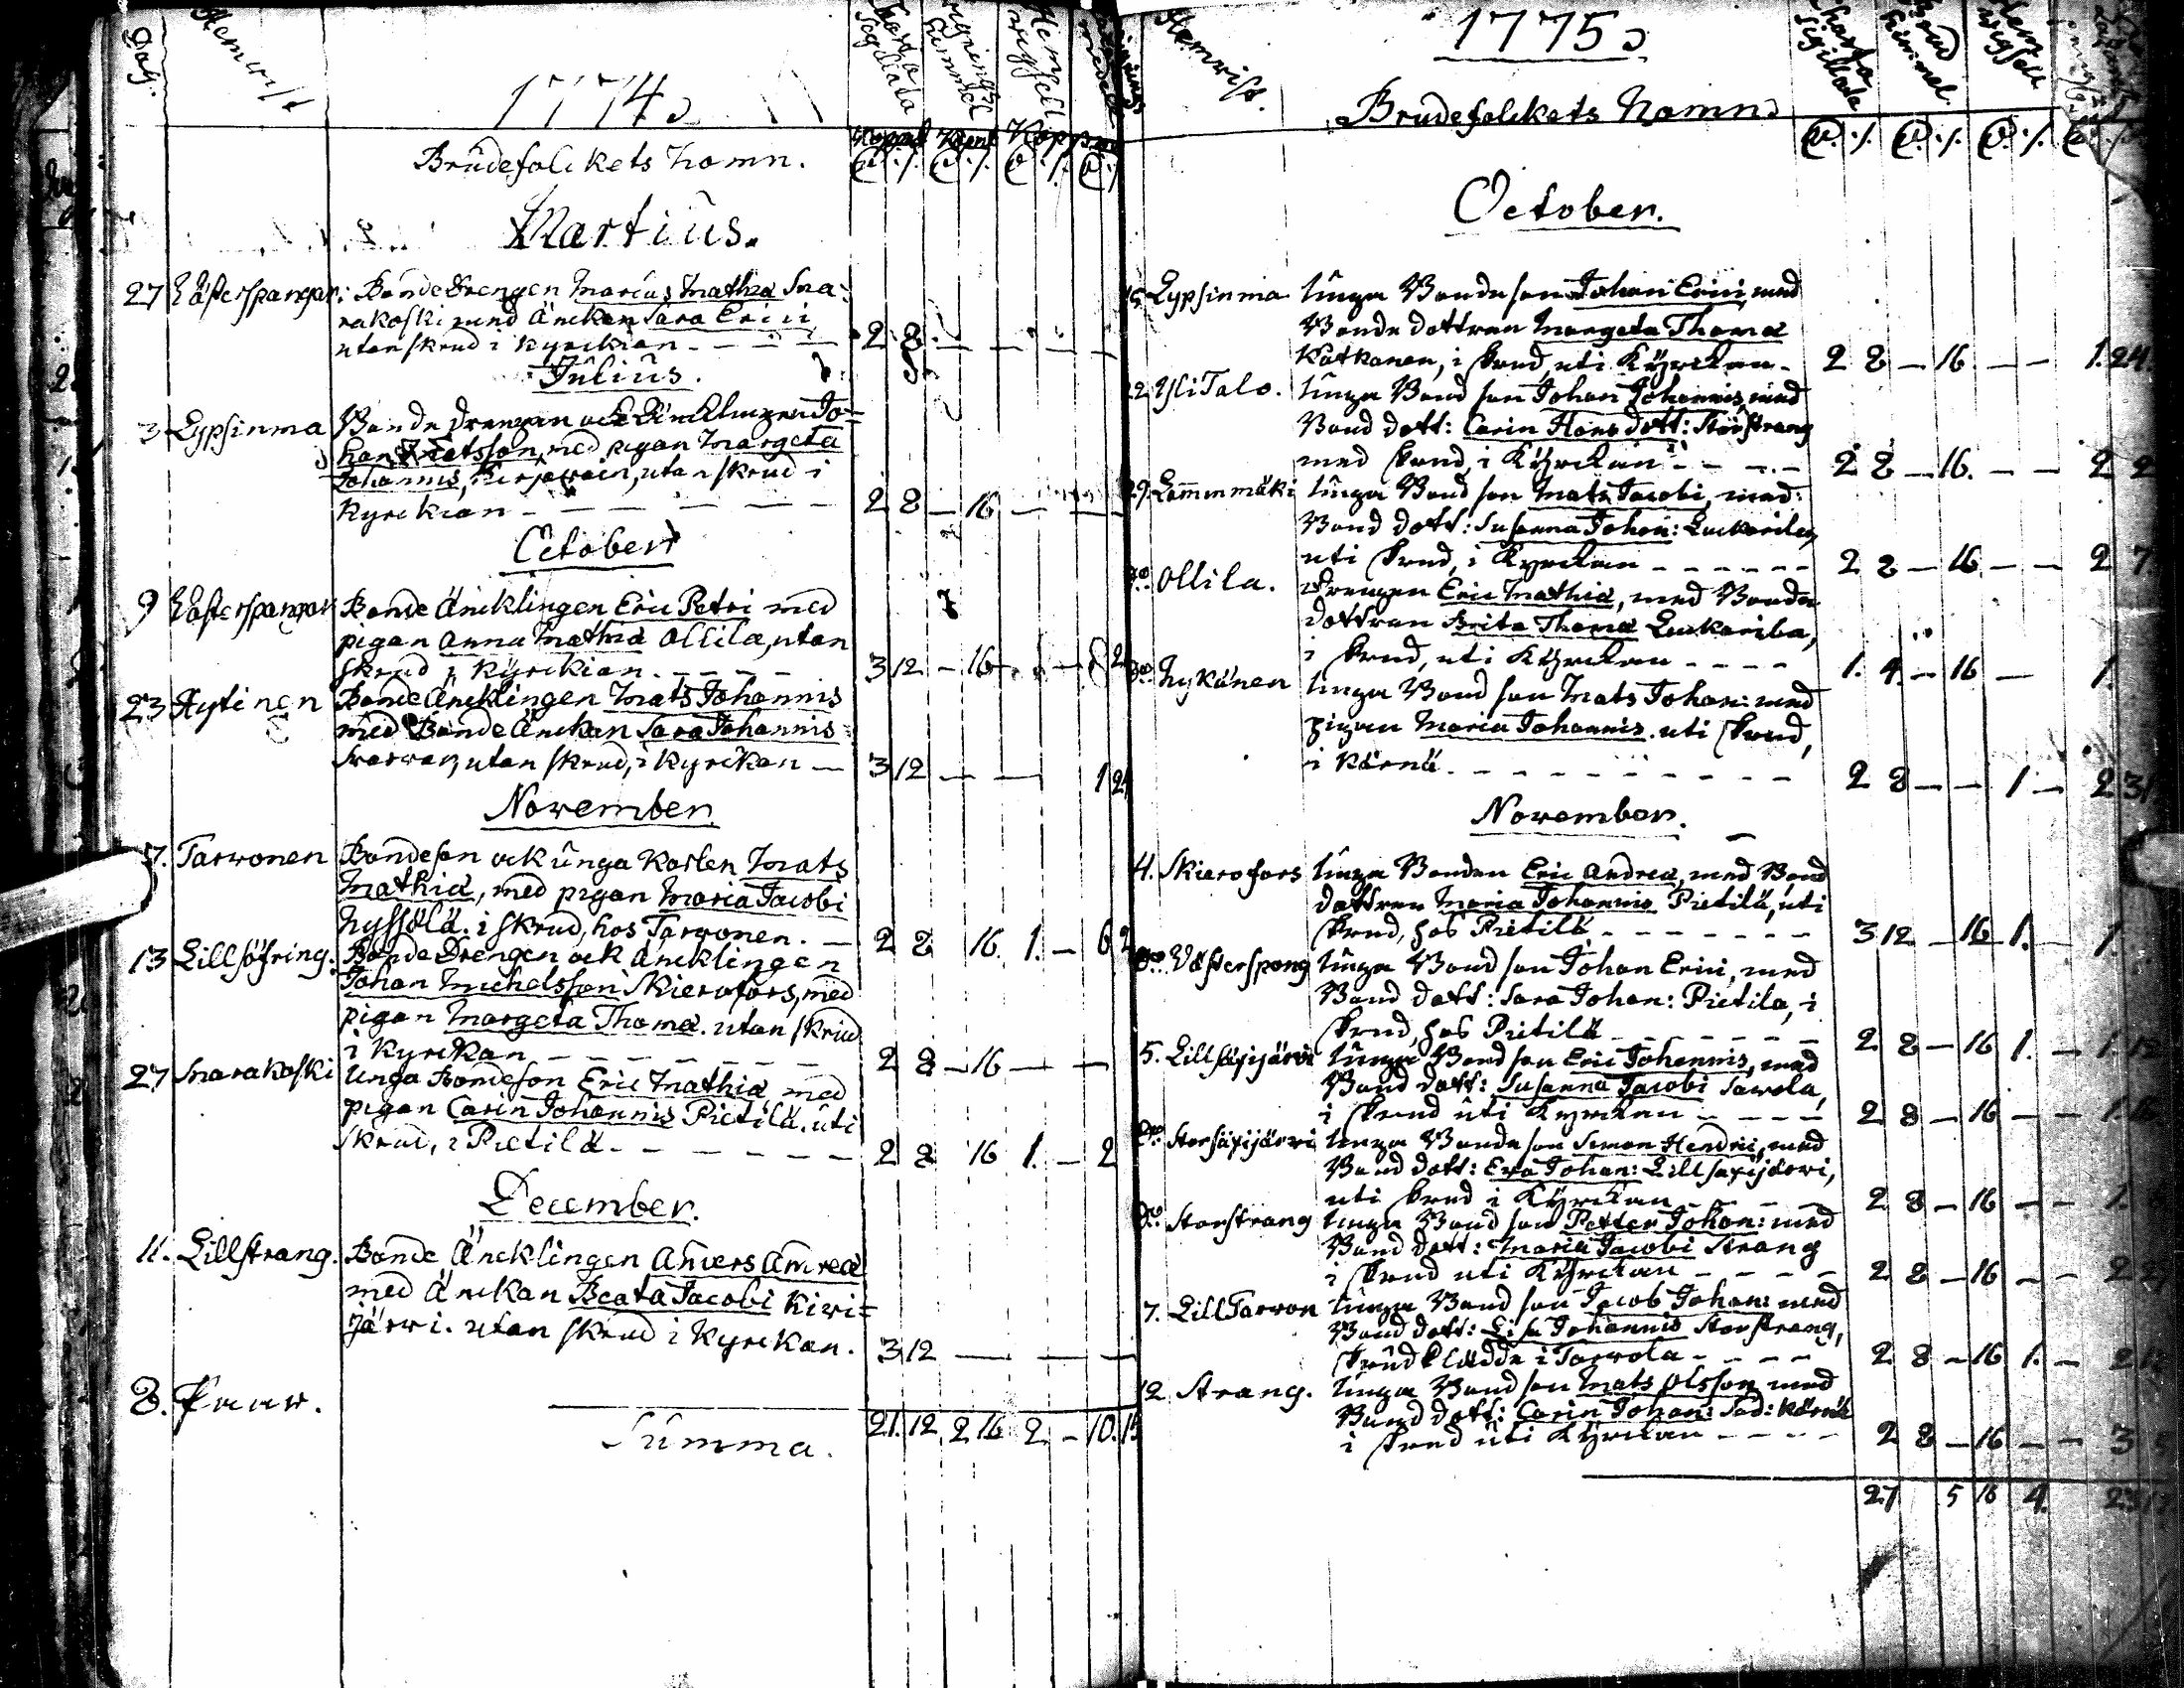 Dag.
Hemvist
1774
Charta Sigillata
Vignings Himmel
Hemvigsel
Brudefolckets Namn.
Martius.
27 Västerspangar. Bonde Drengen Marcus Mathiæ Sna-
rakoski med Änckan Sara Erici
utan skrud i Kyrckian - - - 2 8 — — — —
Julius.
3 Lypsinma Bonde drengen ock Äncklingen Jo-
han Matsson, med pigan Margeta
Johannis, utan skrud i
Kyrckian - - - - 2 8 — 16 — —
October
9 Västerspangar Bonde Äncklingen Eric Petri med
pigan Anna Mathiæ Ollila, utan
skrud i Kyrckian - - - 3 12 — 16
23 Hytinen Bonde Äncklingen Mats Johannis
med Bonde Änckan Sara Johannis
utan skrud, i Kyrckan — 3 12 — —
November.
7. Tarvonen Bondeson ock unga Karlen Mats
Mathiæ, med pigan Maria Jacobi
Nyssölä. i skrud, hos Tarvonen. — 2 8 16 1. — 6
13 Lillsöfring. Bonde Drengen ock Äncklingen
Johan Michelsson Skierofors, med
pigan Margeta Thomæ. utan skrud
i Kyrckan - - - - 2 8 — 16 — —
27 Snarakoski Unga Bondeson Eric Mathiæ med
pigan Carin Johannis Pietilä. uti
skrud, i Pietilä - - - - 2 8 16 1. — 2
December.
11. Lillstrang. Bonde Äncklingen Anders Andreæ
med Änckan Beata Jacobi Kivi=
järvi. utan skrud i Kyrckan. 3 12 — — —
8. Paar.
Summa. 21. 12 2 16 2 — 10.
1775
Hemvist.
Charta Sigillata
Brud Himmel
Hemvigsell
Brudefolckets Namn
October.
15. Lypsinma Unga Bondeson Johan Erici med
Bonde dottren Margeta Thomæ
Katkanen, i skrud, uti Kyrckan - 2 8 — 16 — — 1. 24.
22. Yli Talo. Unga Bond son Johan Johannis, med
Bond dott: Carin Hansdott: Storstrang
med skrud i Kyrckan - - - 2 8 — 16. — — 2 2
29. Lamminmäki Unga Bond son Mats Jacobi, med
Bond dott: Susanna Johan: Luckarila,
uti skrud, i Kyrckan - - - 2 8 — 16 — — 2 7
do Ollila. Drengen Eric Mathiæ, med Bonde
dottren Brita Thomæ Luckarila,
i skrud, uti Kyrckan - - - 1. 4. — 16 — 1.
do Nykänen Unga Bond son Mats Johan: med
pigan Maria Johannis. uti skrud,
i Kärnä - - - - 2 8 — — 1 — 2 31
November.
4. Skierofors Unga Bonden Eric Andreæ, med Bond
dottren Maria Johannis Pietilä, uti
skrud, hos Pietilä - - - 3 12 — 16 1. — 1.
do Västerspang Unga Bond son Johan Erici, med
Bond dott: Sara Johan: Pietilä, i
skrud, hos Pietilä - - - 2 8 — 16 1. — 1. 12
5. Lillsäxijärvi Unga Bond son Eric Johannis, med
Bond dott: Susanna Jacobi Savola,
i skrud uti Kyrckan - - - 2 8 — 16 — —
do Storsäxijärvi Unga Bonde son Simon Hendrici, med
Bond dott: Eva Johan: Lillsäxijärvi,
uti skrud i Kyrckan - - - 2 8 — 16 — — 1.
do Storstrang Unga Bond son Petter Johan: med
Bond dott: Maria Jacobi Strang
i skrud uti Kyrckan - - - 2 8 — 16 — — 2
7. Lill Tarvon Unga Bond son Jacob Johan: med
Bond dott: Lisa Johannis Storstrang,
skrudklädde i Tarvola - - - 2 8 — 16 1. — 2
12 Strang. Unga Bond son Mats Olsson med
Bond dott: Carin Johan: Kärnä
i skrud uti Kyrckan - - - 2 8 — 16 — — 3
27 5 16 4.